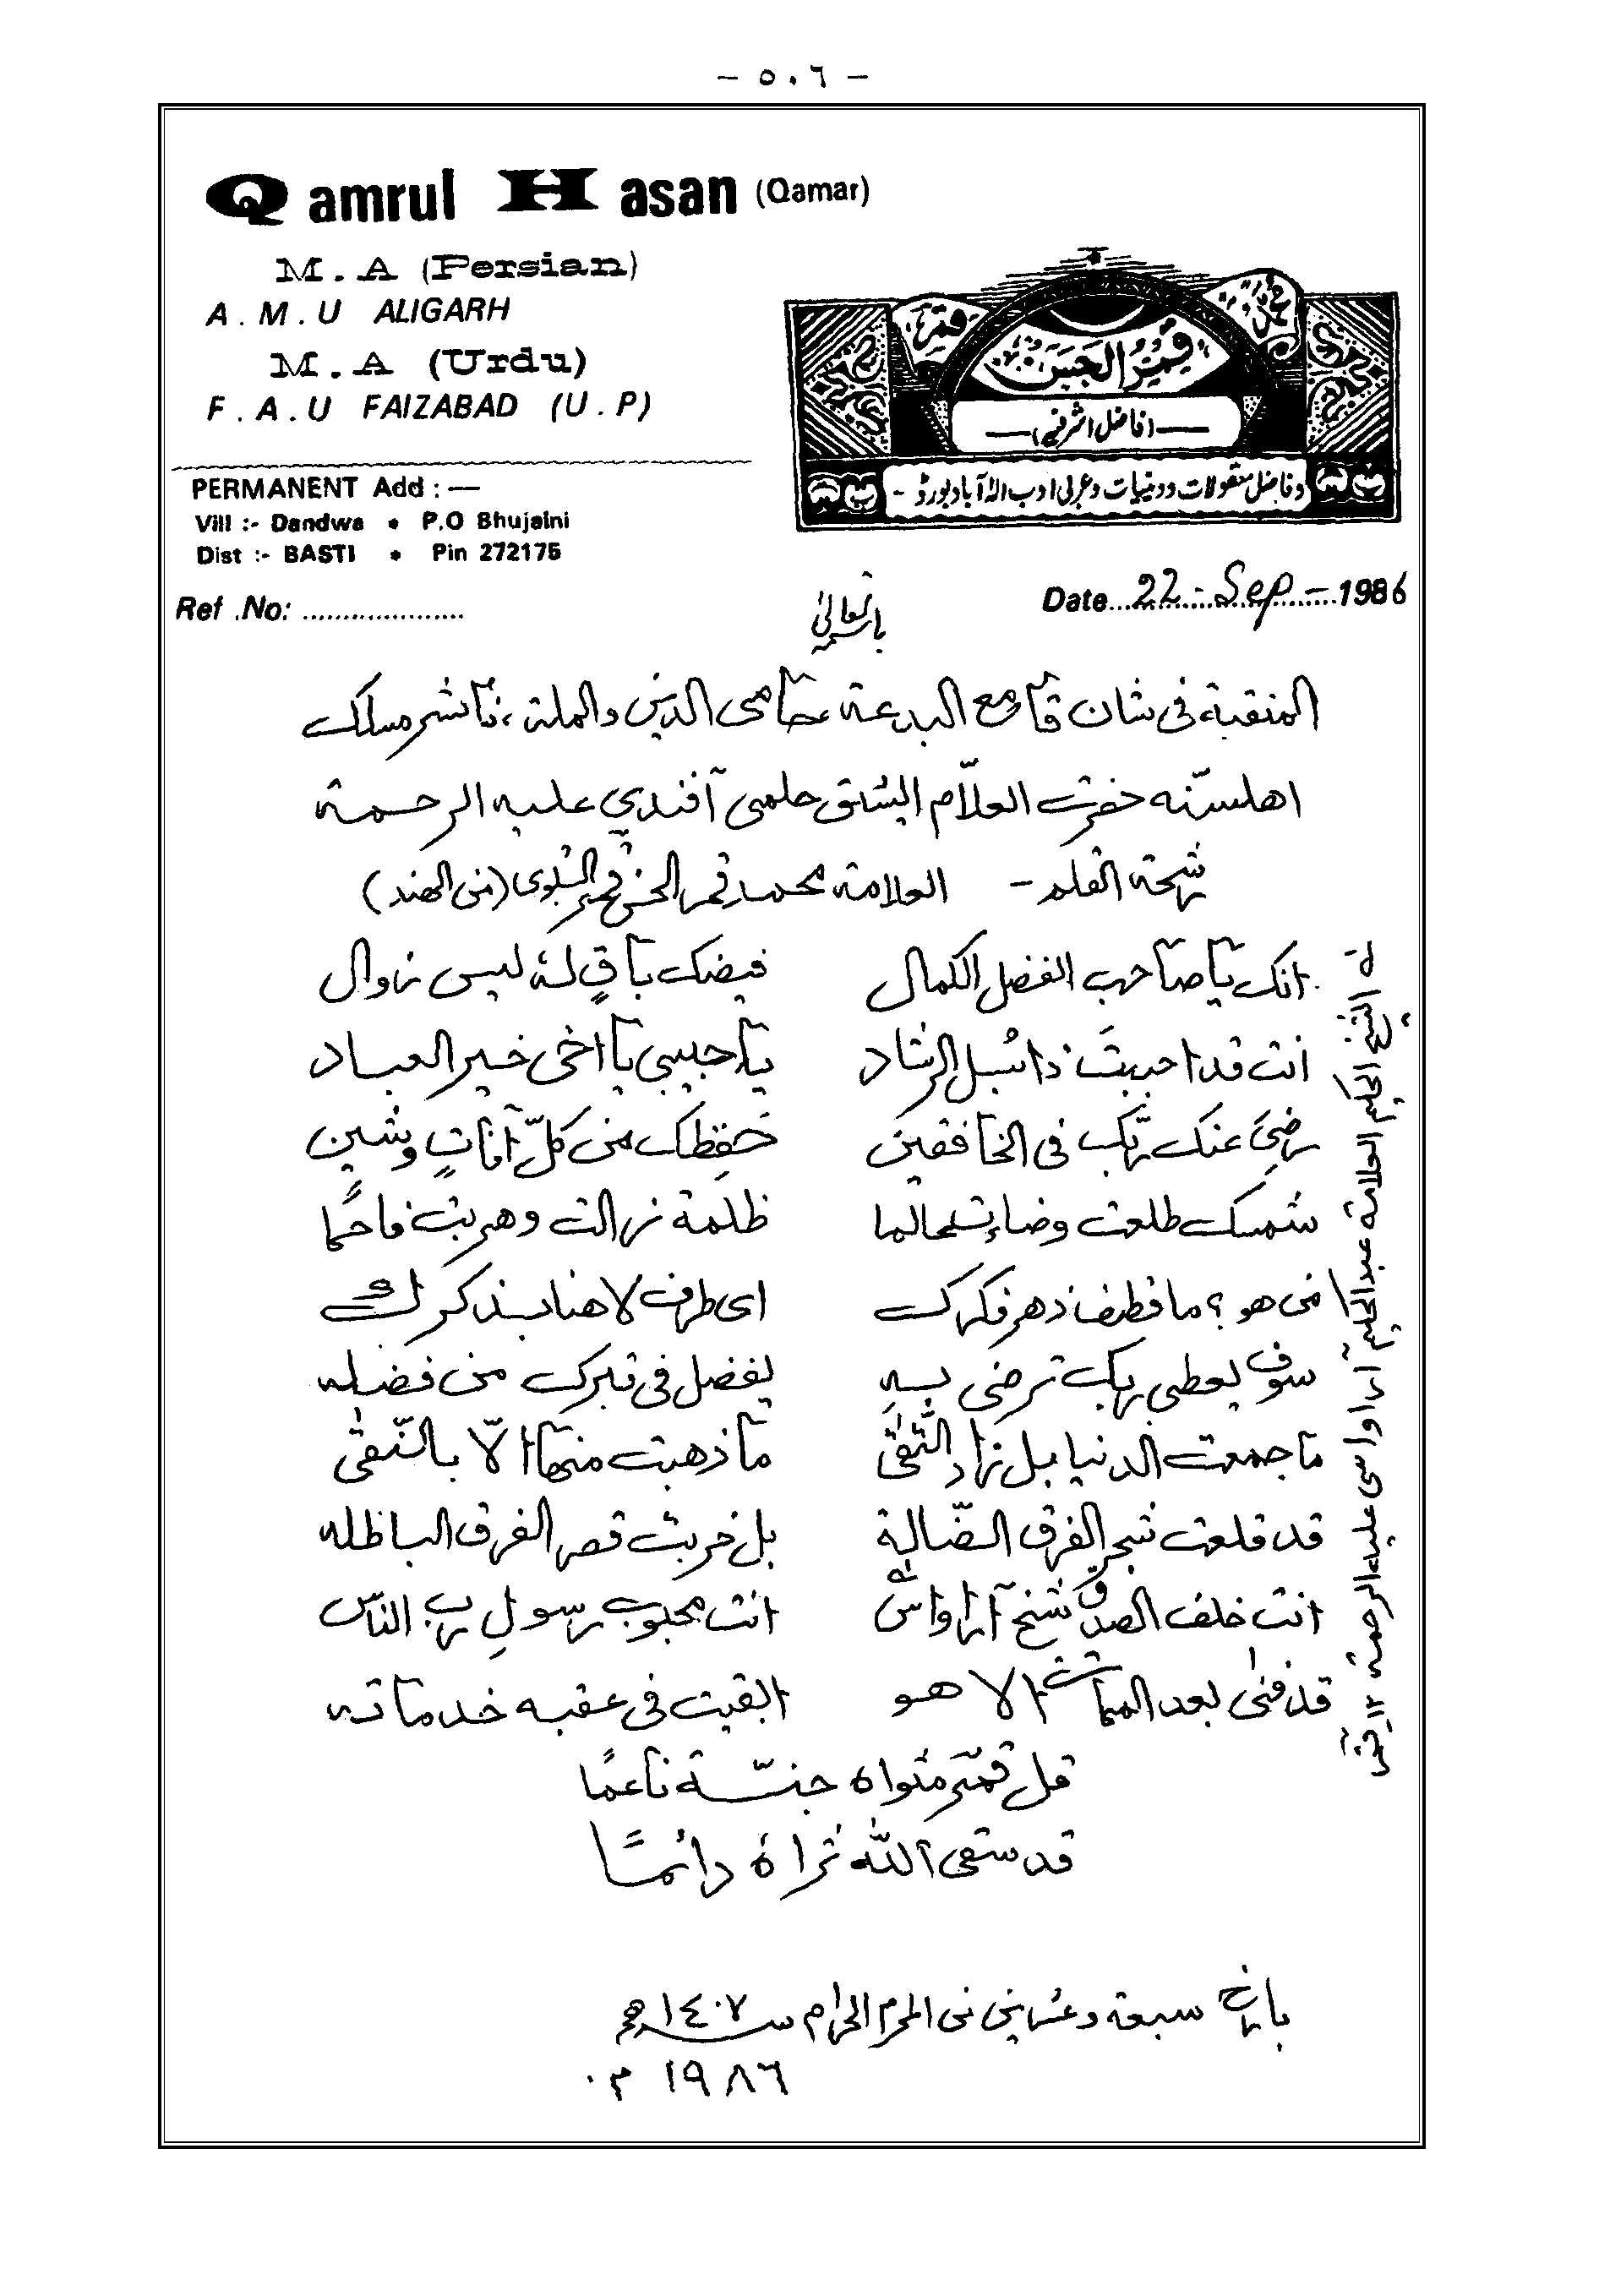 - ٥٠٦ -
Qamrul Hasan (Qamar)
M.A (Persian)
A.M.U ALIGARH
M.A (Urdu)
F.A.U FAIZABAD (U.P)
محمد قمر الحسن قمر
(فاضل اشرفیہ)
و فاضل معقولات و دینیات و عربی ادب الہ آباد بورڈ -
PERMANENT Add :—
Vill :- Dandwa • P.O Bhujaini
Dist :- BASTI • Pin 272175
Ref .No: ....................
Date...22 - Sep -...1986
باسمہ تعالیٰ
المنقبة فى شان قامع البدعة حامى الدين والملة ، ناشر مسلك
اهلسنّه حضرت العلاّم الشيخ حلمى آفندي عليه الرحمة
رشحة القلم - العلامة محمد قمر الحسن قمر البستوى (من الهند)
انك يا صاحب الفضل الكمال فيضك باقٍ لهٗ ليس زوال
انت قد احببتَ ذا سُبل الرشاد يا حبيبى يا اخى خير العباد
رضىَ عنك ربّك فى الخافقين حَفِظك من كلّ آفاتٍ وشين
شمسك طلعت وضاءت عالما ظلمة زالت وهربت فاحمًا
من هو ؟ ما قطف زهر فكرك اى طرف لا هناب بذكرك
سوف يعطى ربك ترضى بهِ لفضل فى قبرك من فضله
ما جمعت الدنيا بل زاد التُّقىٰ ما ذهبت منها الاّ بالنّقىٰ
قد قلعت شجر الفرق الضّالة بل خربت قصر الفرق الباطله
انت خلف الصدق شيخ آرواسىٖ انت محبوب رسولِ ربّ الناس
قد فنىٰ بعد الممات الا هو ابقيت فى عقبه خدماته
قل قمر مثواهٗ جنّة ناعمًا
قد سقى اللّٰه ثراهٗ دائمًا
لهٓ الشيخ الحكيم العلامة عبد الحكيم آرواسى عليه الرحمة ١٢ قمر
بتاريخ سبعة وعشرين من المحرم الحرام سـ١٤٠٧ـنة هـ
١٩٨٦ م.